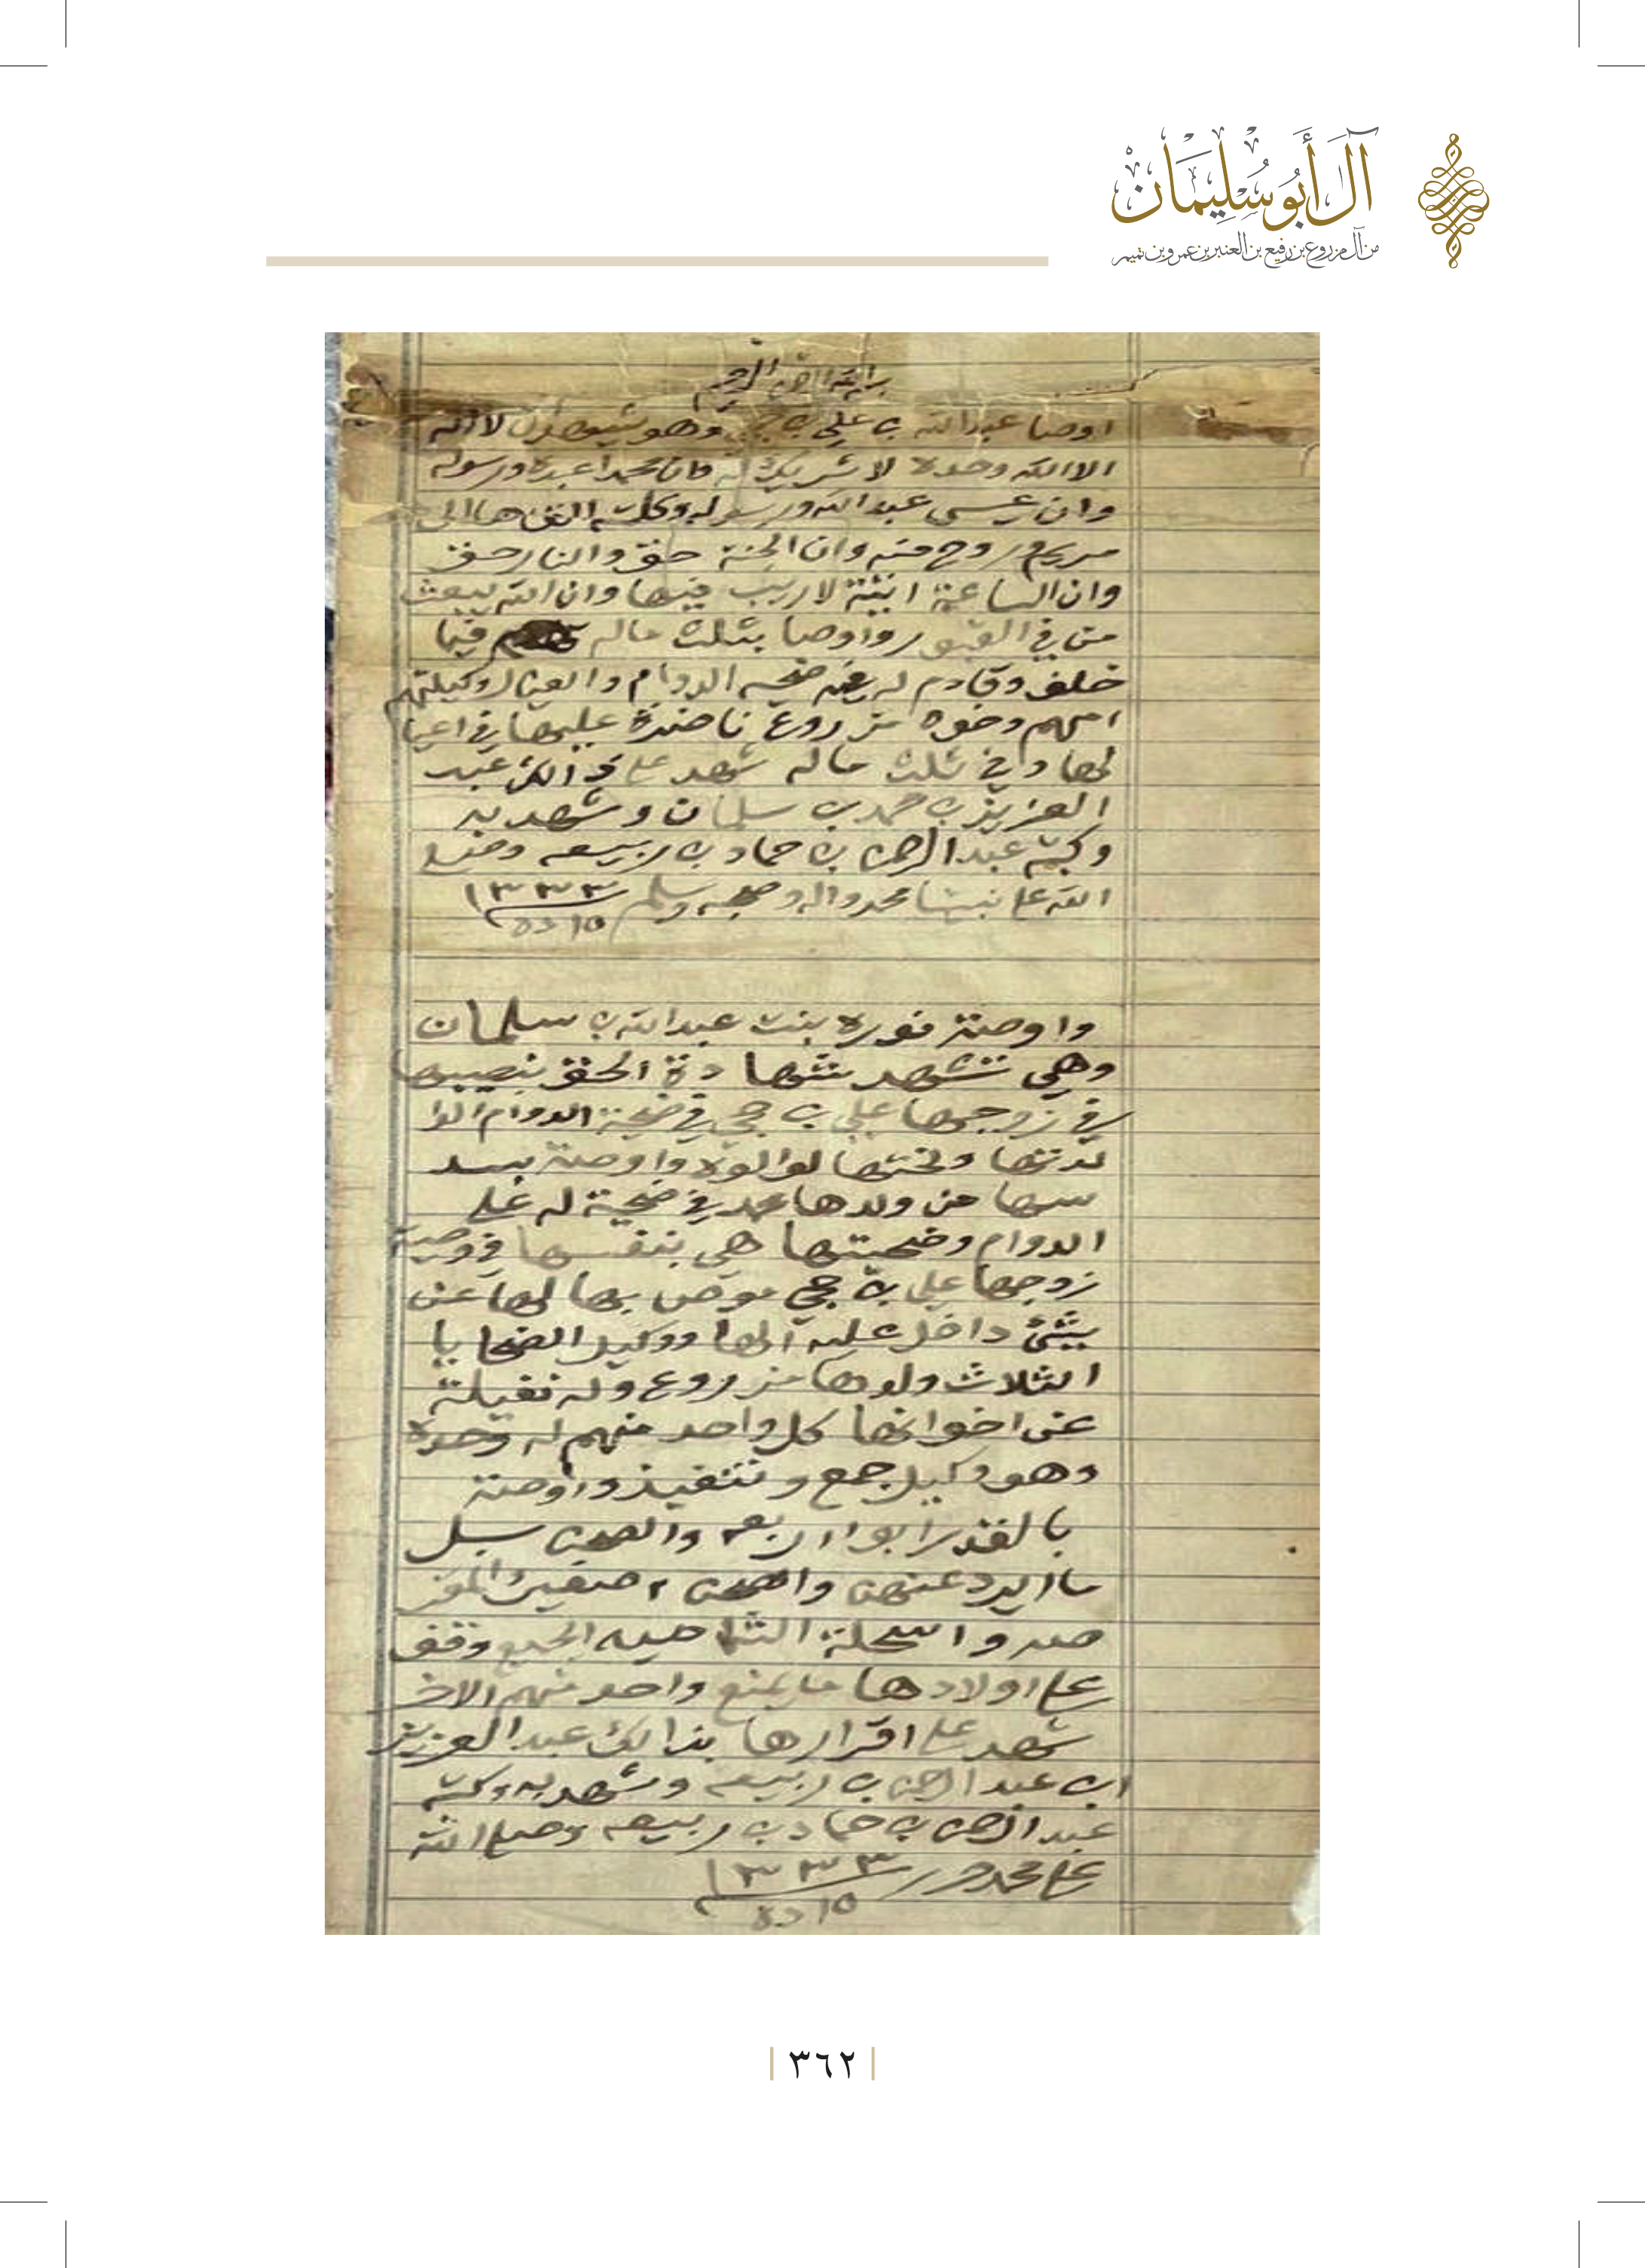 آل أبو سليمان
من آل مزروع بن رفيع بن العنبر بن عمرو بن تميم
بسم الله الرحمن الرحيم
اوصا عبدالله بن علي بن حجي وهو يشهد ان لا اله
الا الله وحده لا شريك له وان محمدا عبده ورسوله
وان عيسى عبد الله ورسوله وكلمته القاها الى
مريم وروح منه وان الجنة حق والنار حق
وان الساعة اتية لا ريب فيها وان الله يبعث
من في القبور واوصا بثلث ماله فيما
خلف وقادم له ضحيه الدوام والعيال وكيلتهم
امهم وخوه مزروع ناضرة عليها في اعيا
لها وفي ثلث ماله شهد على ذالك عبد
العزيز بن حمد بن سلمان وشهد به
وكتبه عبد الرحمن بن حماد بن ربيعه وصلى
الله على نبينا محمد واله وصحبه وسلم ١٣٣٣
١٥
واوصة نوره بنت عبدالله بن سلمان
وهي تشهد شهادة الحق بنصيبها
في زوجها علي بن حجي في ضحية الدوام الوا
لدتها ولختها لوا لوه واوصة بسد
سها من ولدها محمد في ضحية له على
الدوام وضحيتها هي بنفسها في وصية
زوجها علي بن حجي موص بها لها عن
شئ داخل عليه الها ووكيل الضحايا
الثلاث ولدها مزروع وله نفيلة
عن اخوانها كل واحد منهم له وحده
وهو وكيل جمع وتنفيذ واوصة
بالقدر ابوا اربعه والصحن سبل
ما ايرد عنهن والصحن صغير
صدر و الجميع وقف
على اولادها ما يمنع واحد منهم الاخر
شهد على اقرارها بذالك عبد العزيز
ابن عبد الرحمن بن ربيعه وشهد به وكتبه
عبد الرحمن بن حماد بن ربيعه وصلى الله
على محمد ١٣٣٣
١٥
٣٦٢